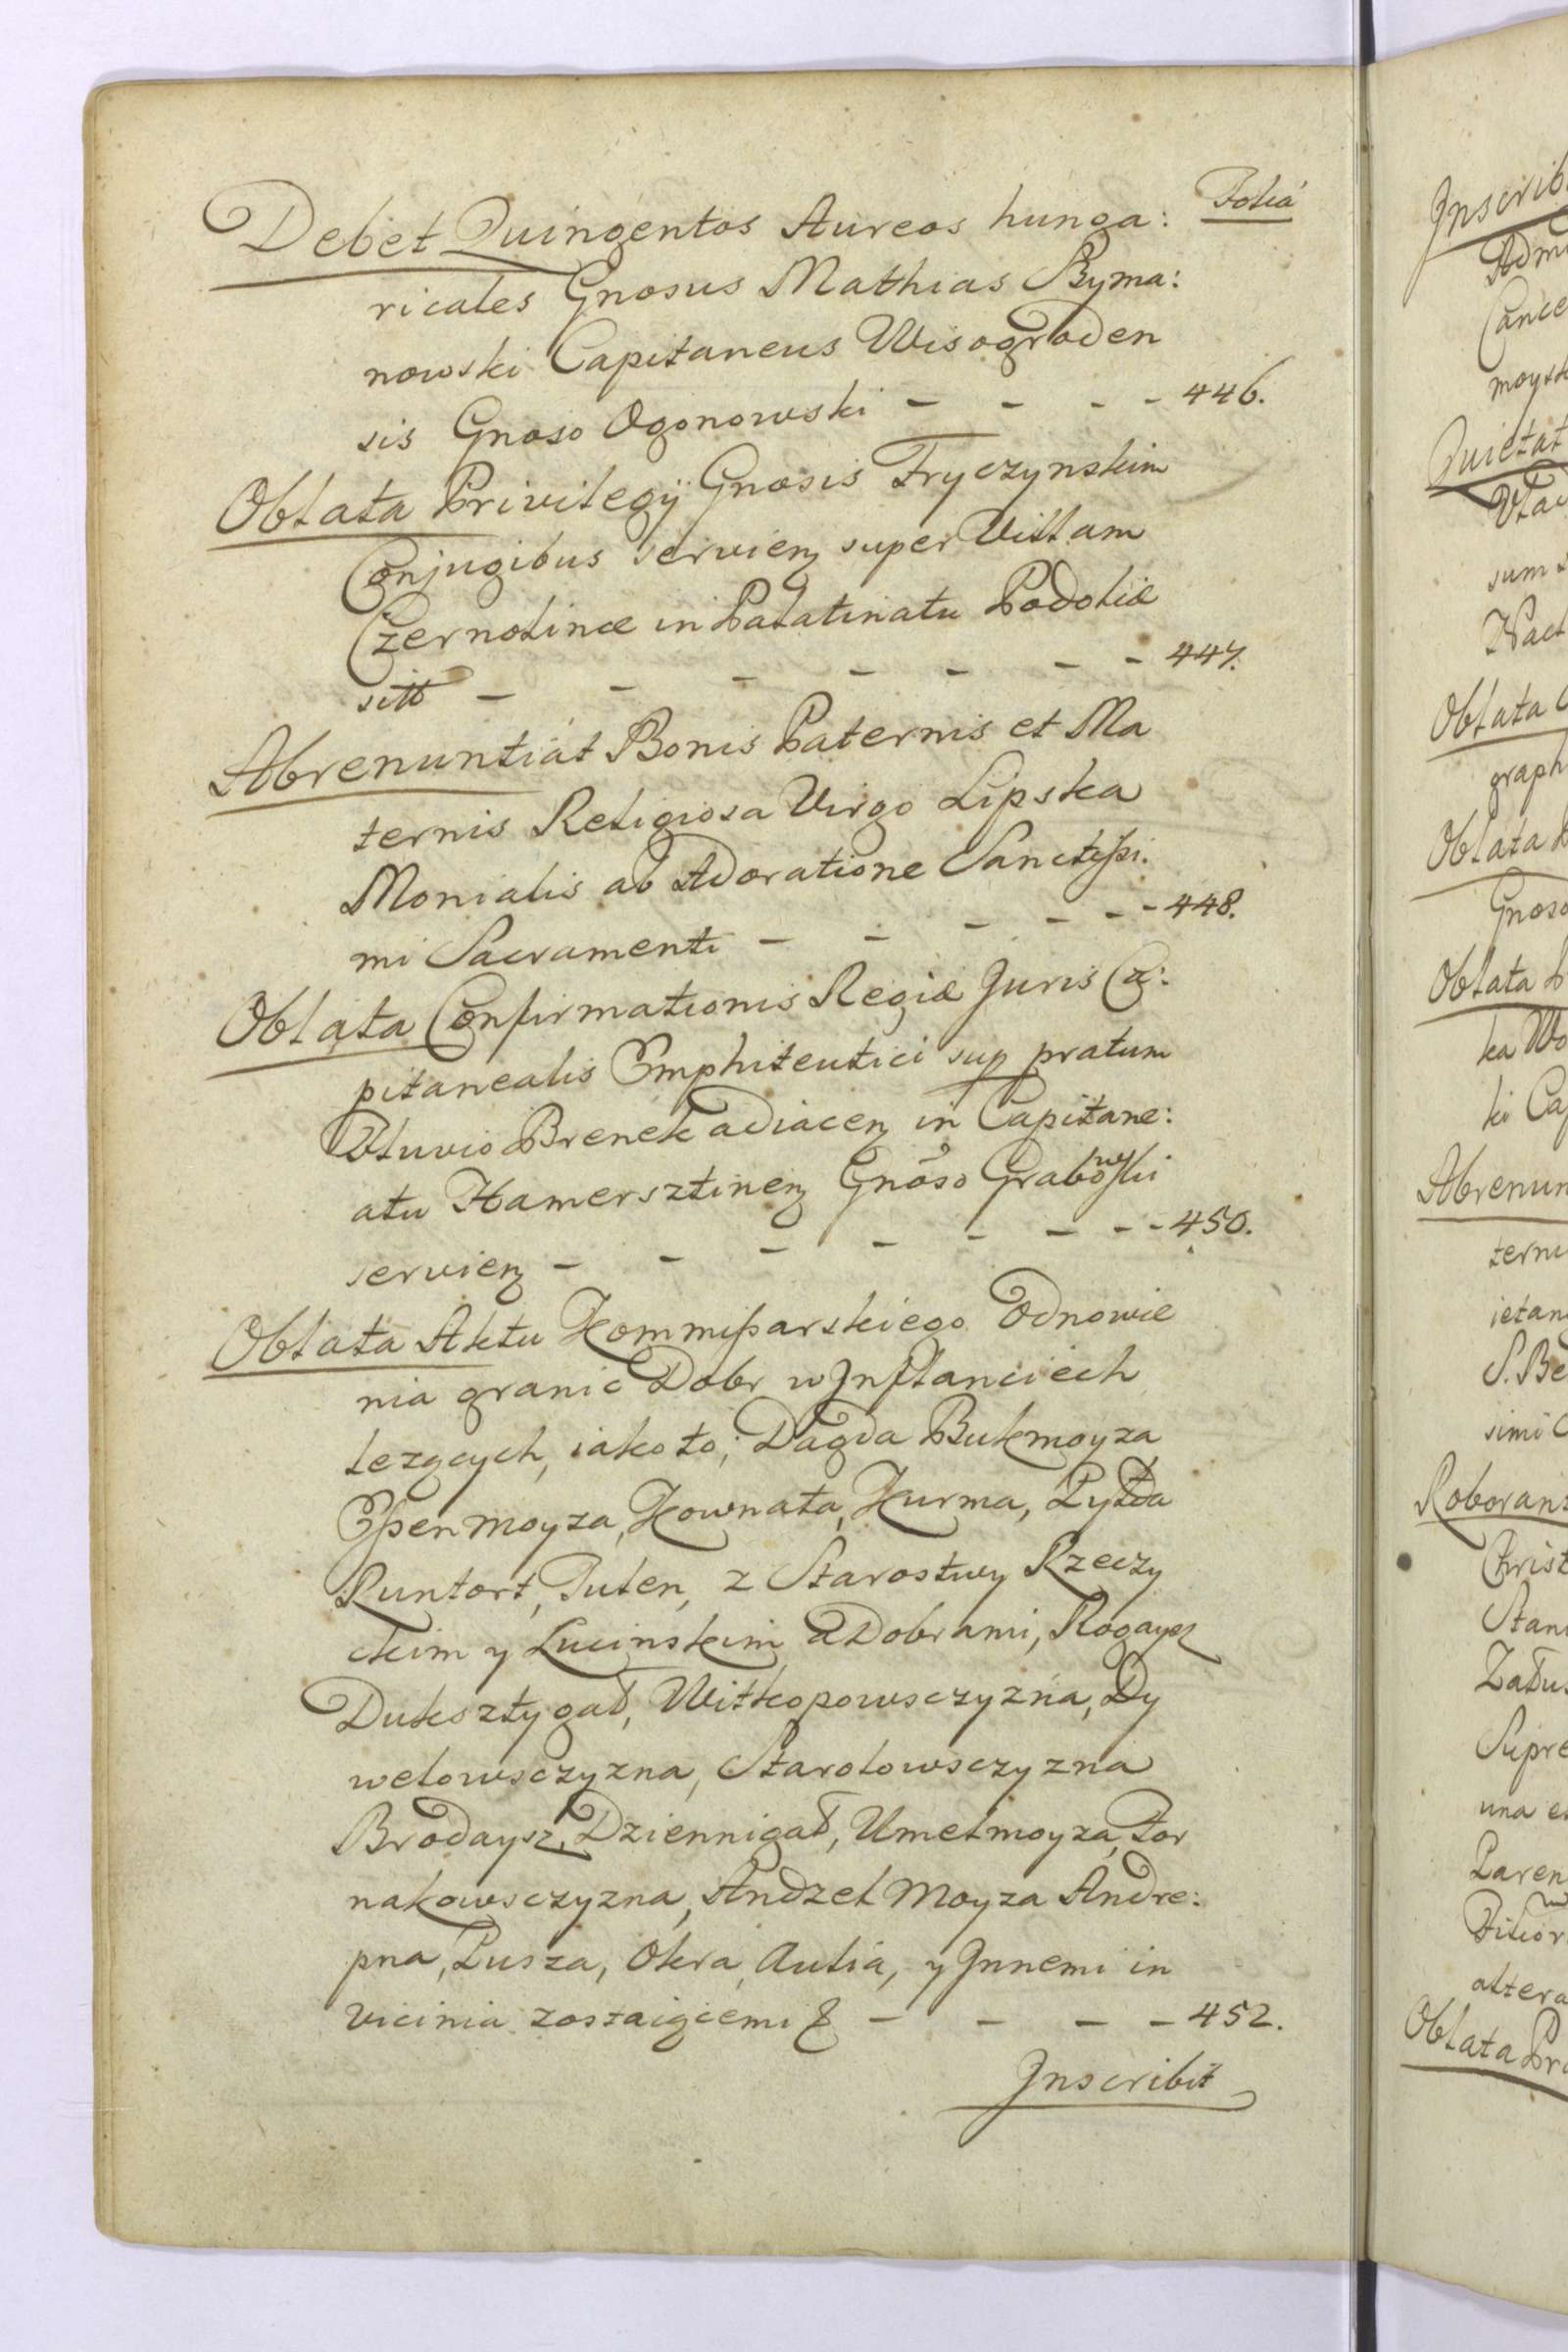 Folia
Debet Quingentos Aureos hunga:
ricales Gnosus Mathias Byma:
nowski Capitaneus Wisogroden
sis Gnoso Ogonowski - - - - 446.
Oblata Privilegij Gnosis Tryczynskim
Conjugibus servien super Villam
Czernolince in Palatinatu Podoliæ
sitt - - - - - - - 447.
Abrenuntiat Bonis Paternis et Ma
ternis Religiosa Virgo Lipska
Monialis ab Adoratione Sanctissi.
mi Sacramenti - - - - - - 448.
Oblata Confirmationis Regiæ Juris Ca:
pitanealis Emphiteutici sup pratum
Fluvio Brenek adiacen in Capitane:
atu Hamersztinen Gnoso Grabowski
servien - - - - - - - - 450.
Oblata Aktu Kommissarskiego Odnowie
nia granic Dobr w Inflanciech
lezących, iako to; Dagda Bukmoyza
Essenmoyza, Kownata, Kurma, Lytda
Runtort, Puten, z Starostwy Rzeczy
ckim y Lucinskim a Dobrami, Rogaysz
Duksztygał, Witkopowsczyzna, Dy
welowsczyzna, Starolowsczyzna
Brodaysz, Dziennigał, Umelmoyza, For
nakowsczyzna, Andzelmoyza Andre:
pna, Pusza, Okra, Aulia, y Innemi in
vicinia zostaiącemi & - - - - 452.
Inscribit